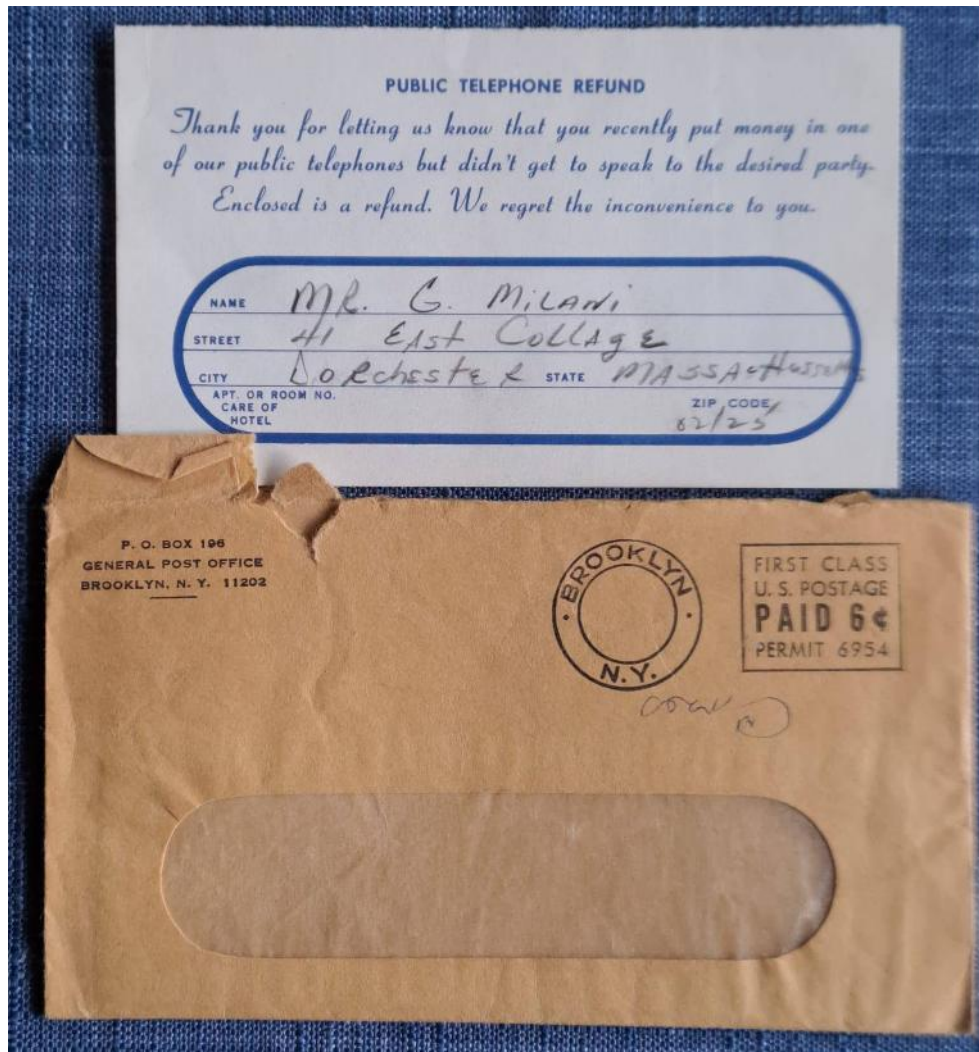 PUBLIC TELEPHONE REFUND
Thank you for letting us know that you recently put money in one
of our public telephones but didn't get to speak to the desired party.
Enclosed is a refund. We regret the inconvenience to you.
NAME MR. G. MiLANi
STREET 41 EAst CollAgE
CITY DoRchestER STATE MASSAcHussetts
APT. OR ROOM NO.
CARE OF
HOTEL
ZIP CODE
02125
P. O. BOX 196
GENERAL POST OFFICE
BROOKLYN, N. Y. 11202
BROOKLYN
N.Y.
FIRST CLASS
U. S. POSTAGE
PAID 6¢
PERMIT 6954